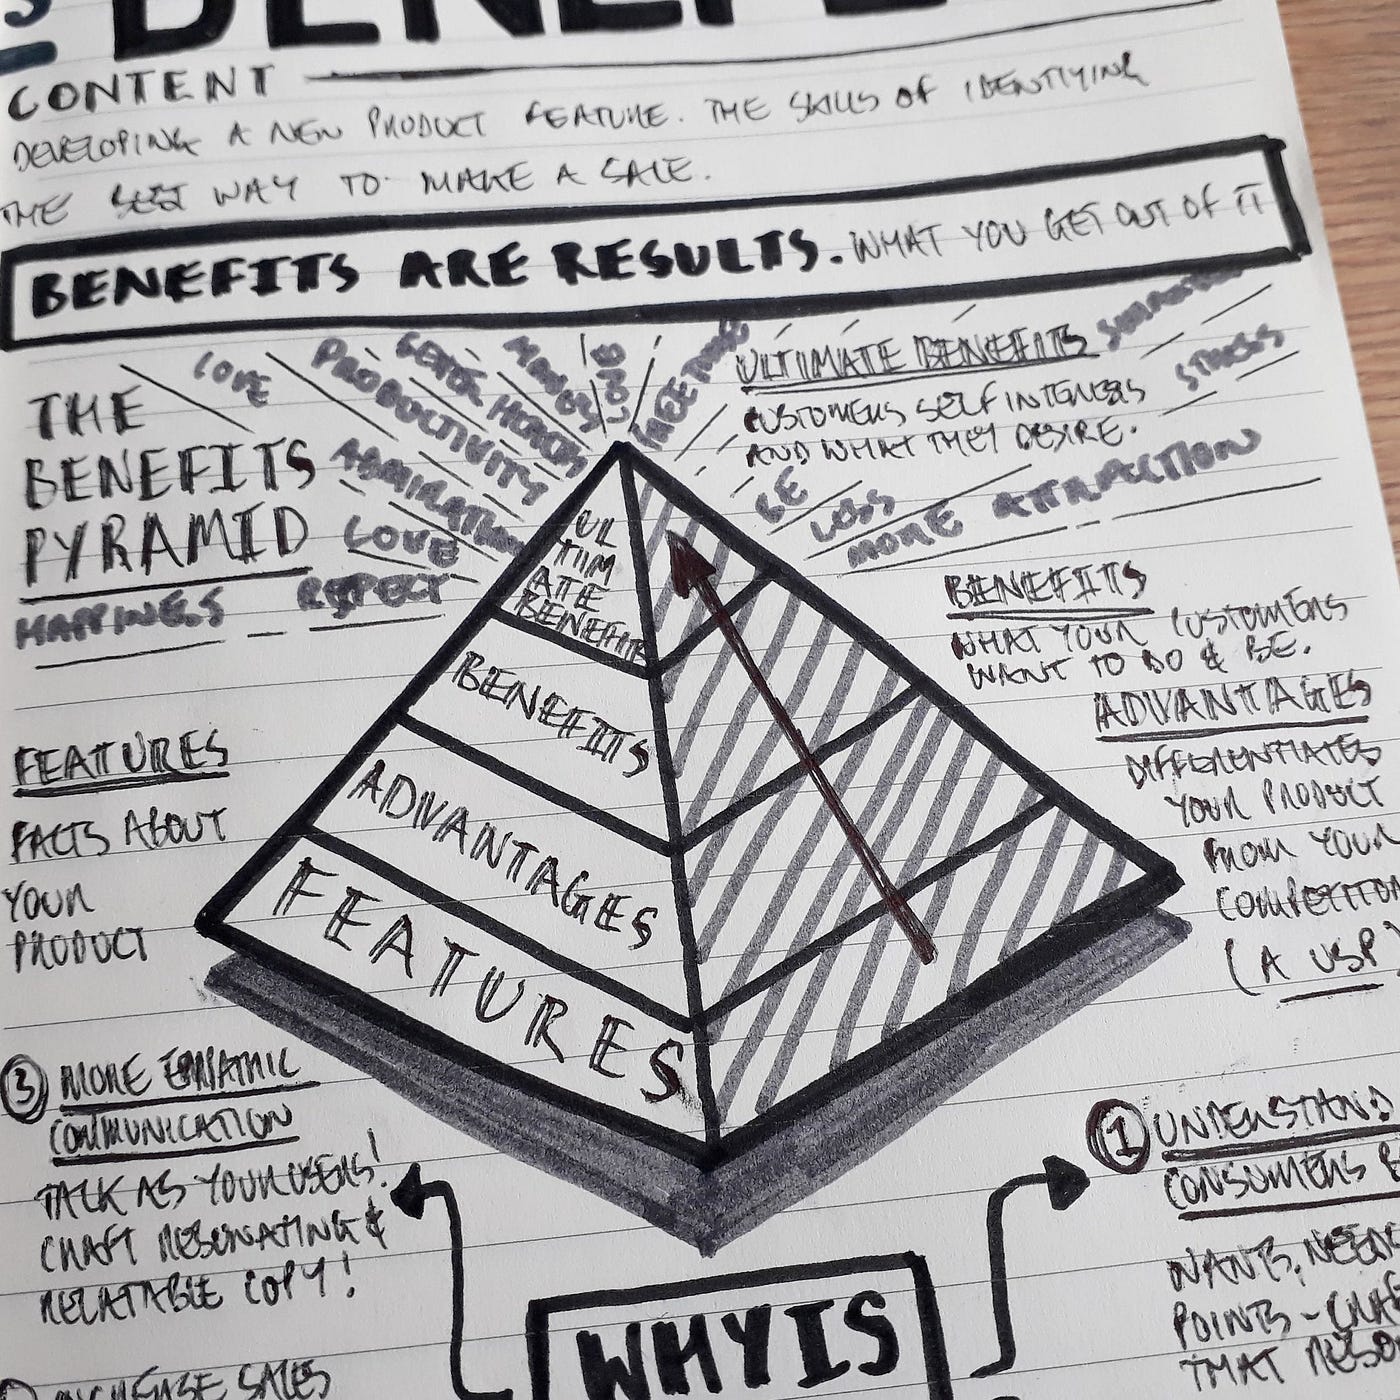 BENEFI
CONTENT
DEVELOPING A NEW PRODUCT FEATURE. THE SKILLS OF IDENTIYING
THE BEST WAY TO MAKE A SALE.
BENEFITS ARE RESULTS. WHAT YOU GET OUT OF IT
THE
BENEFITS
PYRAMID
LOVE
PRODUCTIVITY
ADMIRATION
LOVE
RESPECT
HAPPINESS
MONEY
LOVE
ULTIMATE BENEFITS
CUSTOMERS SELF INTERESS
AND WHAT THEY DESIRE.
STRESS
BE
LOSS
MORE ATTRACTION
UL
TIM
ATE
BENEFITS
BENEFITS
ADVANTAGES
FEATURES
BENEFITS
WHAT YOUR CUSTOMERS
WANT TO DO & BE.
ADVANTAGES
DIFFERENTIATES
YOUR PRODUCT
FROM YOUR
COMPETITOR
(A USP)
FEATURES
FACTS ABOUT
YOUR
PRODUCT
3 MORE EMPATHIC
COMMUNICATION
TALK AS YOUR USERS!
CRAFT RESONATING &
RELATABLE COPY!
INCREASE SALES
WHY IS
1 UNDERSTAND
CONSUMERS
WANTS, NEEDS
POINTS -
THAT RESO